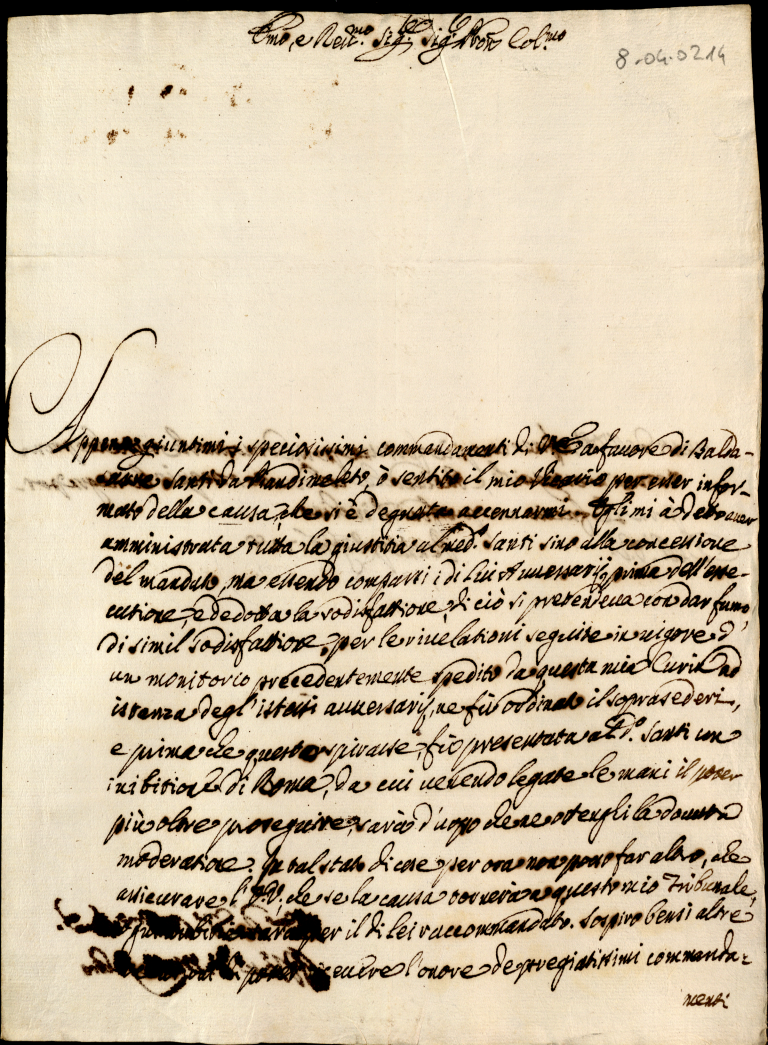 Em̃o, e Reu.mo Sig.r Sig.r Pron Col.mo
8-04-0214
Appena giuntimi i speciosissimi commandamenti di V.E. a fauore di Balda-
Santi da ò sentito il mio Vicario per esser infor-
mato della causa, che si è degnata accennarmi. Egli mi à detto auer
amministrata tutta la giustitia al med.o Santi sino alla concessione
del mandato, ma essendo comparsi i di lui Auuersarij prima dell'ese-
cutione, e dedotta la sodisfattione, di ciò si pretendeua con dar fumo
di simil sodisfattione, per le riuelationi seguite in uigore d'
un monitorio precedentemente spedito da questa mia Curia ad
istanza degl'istessi auuersarij, ne fù ordinato il soprasedersi,
e prima che questo spirasse, fù presentata al d.o Santi un
inibitione di Roma, da cui uenendo legate le mani il poter
più oltre proseguire, sarà d'uopo che ne ottenghi la douuta
moderatione. In tal stato di cose per ora non posso far altro, che
assicurare l'E.V., che se la causa tornerà a questo mio Tribunale,
per il di lei raccommandato. Sospiro bensi altre
riceuere l'onore de pregiatissimi commanda-
menti